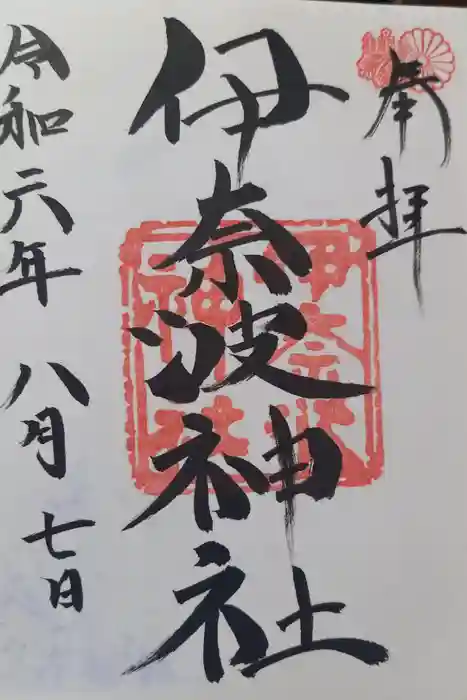 奉拝
伊奈波神社
令和六年八月七日
伊奈波
神社